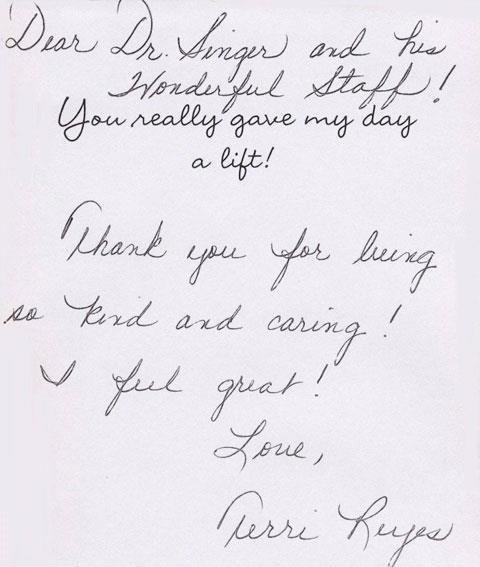 Dear Dr. Singer and his
Wonderful Staff!
You really gave my day
a lift!
Thank you for being
so kind and caring!
I feel great!
Love,
Terri Reyes